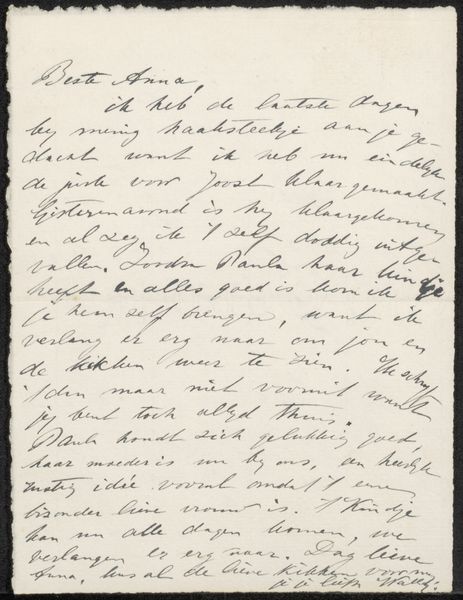 Beste Anna,
ik heb de laatste dagen
by mening haaksteekje aan je ge-
dacht want ik heb nu eindelyk
de jurk voor Joost klaargemaakt.
Gisterenavond is hy klaargekomen
en al zeg ik 't zelf doddig uitge
vallen. Zoodra Paula haar kindje
heeft en alles goed is kom ik
je hem zelf brengen, want ik
verlang er erg naar om jou en
de kikken weer te zien. Ik schryf
't dan maar niet vooruit want
jy bent toch altyd thuis.
Paula houdt zich gelukkig goed,
haar moeder is nu by ons, een heerlyk
rustig idée vooral omdat 't een
bizonder lieve vrouw is. 't Kindje
kan nu alle dagen komen, we
verlangen er erg naar. Dag lieve
Anna, kus al de lieve kikken voor my
je je liefh.